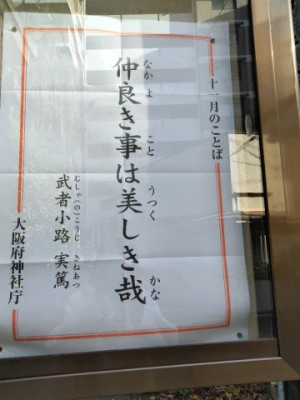 十一月のことば
仲良き事は美しき哉
なかよ こと うつく かな
武者小路 実篤
むしゃ(の)こうじ さねあつ
大阪府神社庁